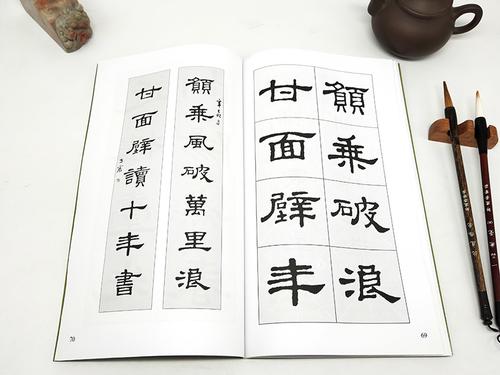 願乘破浪
甘面壁年
69
願乘風破萬里浪
甘面壁讀十年書
70